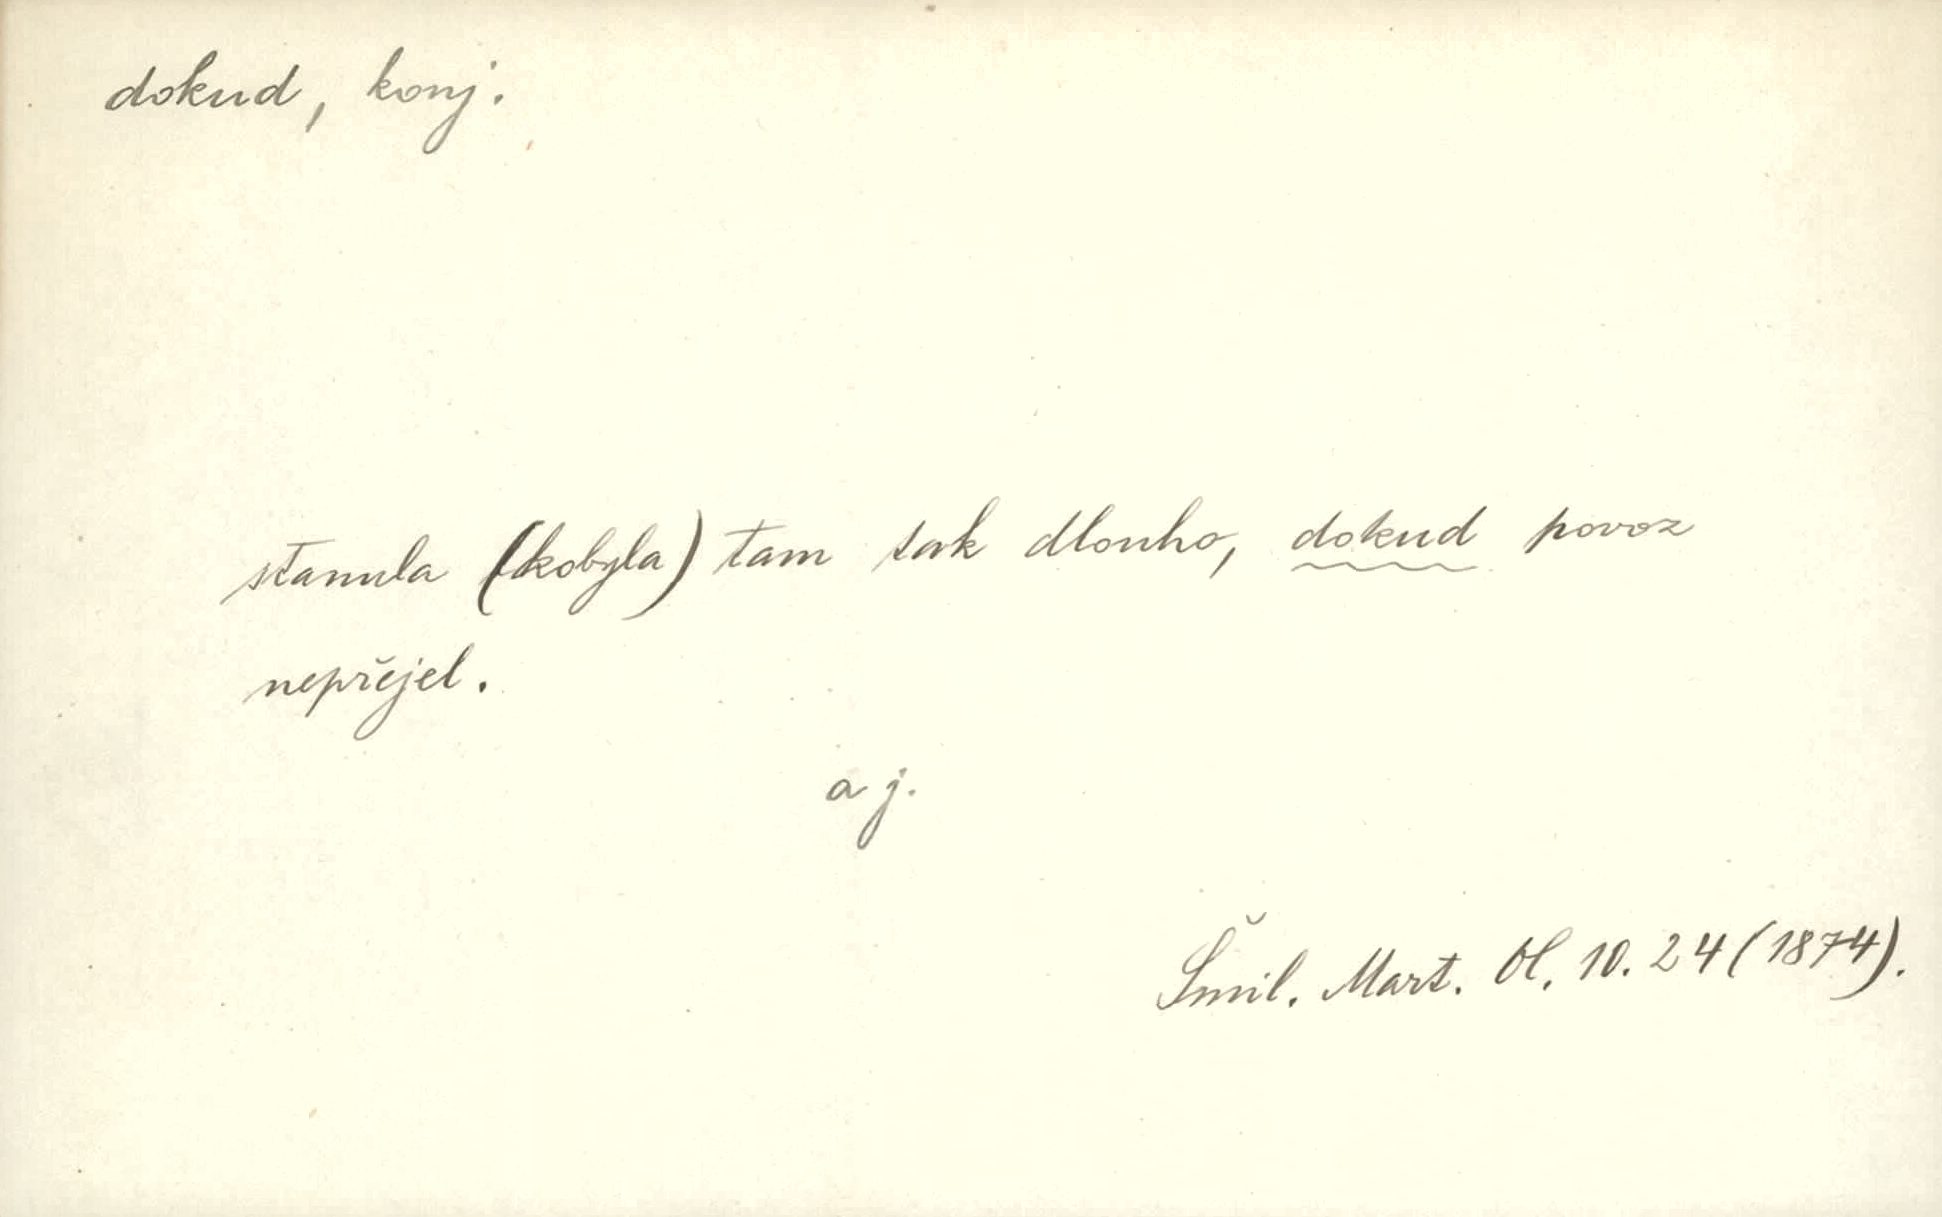 dokud, konj.
stanula (kobyla) tam tak dlouho, dokud povoz
nepřejel.
a j.
Šmil. Mart. Ol. 10. 24 (1874).